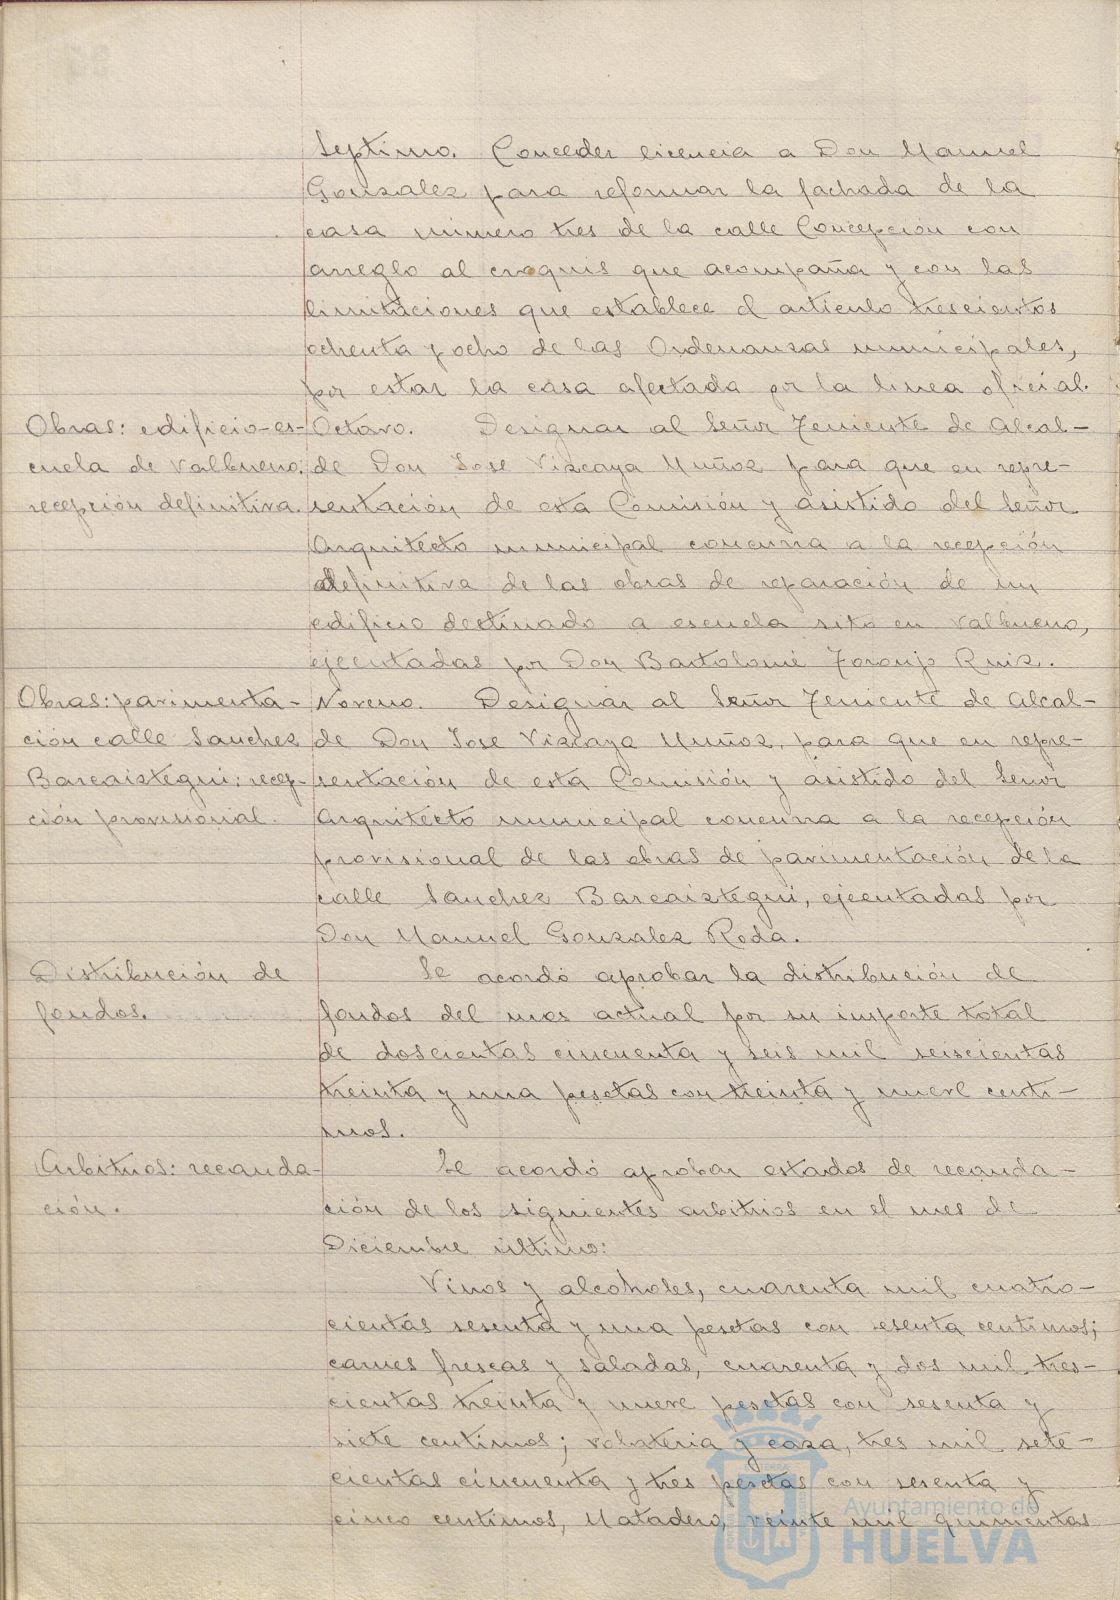 Septimo. Conceder licencia a Don Manuel
Gonzalez para reformar la fachada de la
casa número tres de la calle Concepción con
arreglo al croquis que acompaña y con las
limitaciones que establece el artículo trescientos
ochenta y ocho de las Ordenanzas municipales,
por estar la casa afectada por la linea oficial.
Obras: edificio-es-
cuela de Valbueno:
recepción definitiva.
Octavo. Designar al Señor Teniente de Alcal-
de Don Jose Vizcaya Muñoz para que en repre-
sentación de esta Comisión y asistido del Señor
Arquitecto municipal concurra a la recepción
definitiva de las obras de reparación de un
edificio destinado a escuela sito en Valbueno,
ejecutadas por Don Bartolomé Toronjo Ruiz.
Obras: pavimenta-
ción calle Sanchez
Barcaiztegui: recep-
ción provisional.
Noveno. Designar al Señor Teniente de Alcal-
de Don Jose Vizcaya Muñoz, para que en repre-
sentación de esta Comisión y asistido del Señor
Arquitecto municipal concurra a la recepción
provisional de las obras de pavimentación de la
calle Sanchez Barcaiztegui, ejecutadas por
Don Manuel Gonzalez Roda.
Distribución de
fondos.
Se acordó aprobar la distribución de
fondos del mes actual por su importe total
de doscientas cincuenta y seis mil seiscientas
treinta y una pesetas con treinta y nueve centi-
mos.
Arbitrios: recauda-
ción.
Se acordó aprobar estados de recauda-
ción de los siguientes arbitrios en el mes de
Diciembre último:
Vinos y alcoholes, cuarenta mil cuatro-
cientas sesenta y una pesetas con sesenta centimos;
carnes frescas y saladas, cuarenta y dos mil tres-
cientas treinta y nueve pesetas con sesenta y
siete centimos; volateria y caza, tres mil sete-
cientas cincuenta y tres pesetas con sesenta y
cinco centimos, Matadero, veinte mil quinientas
Ayuntamiento de
HUELVA